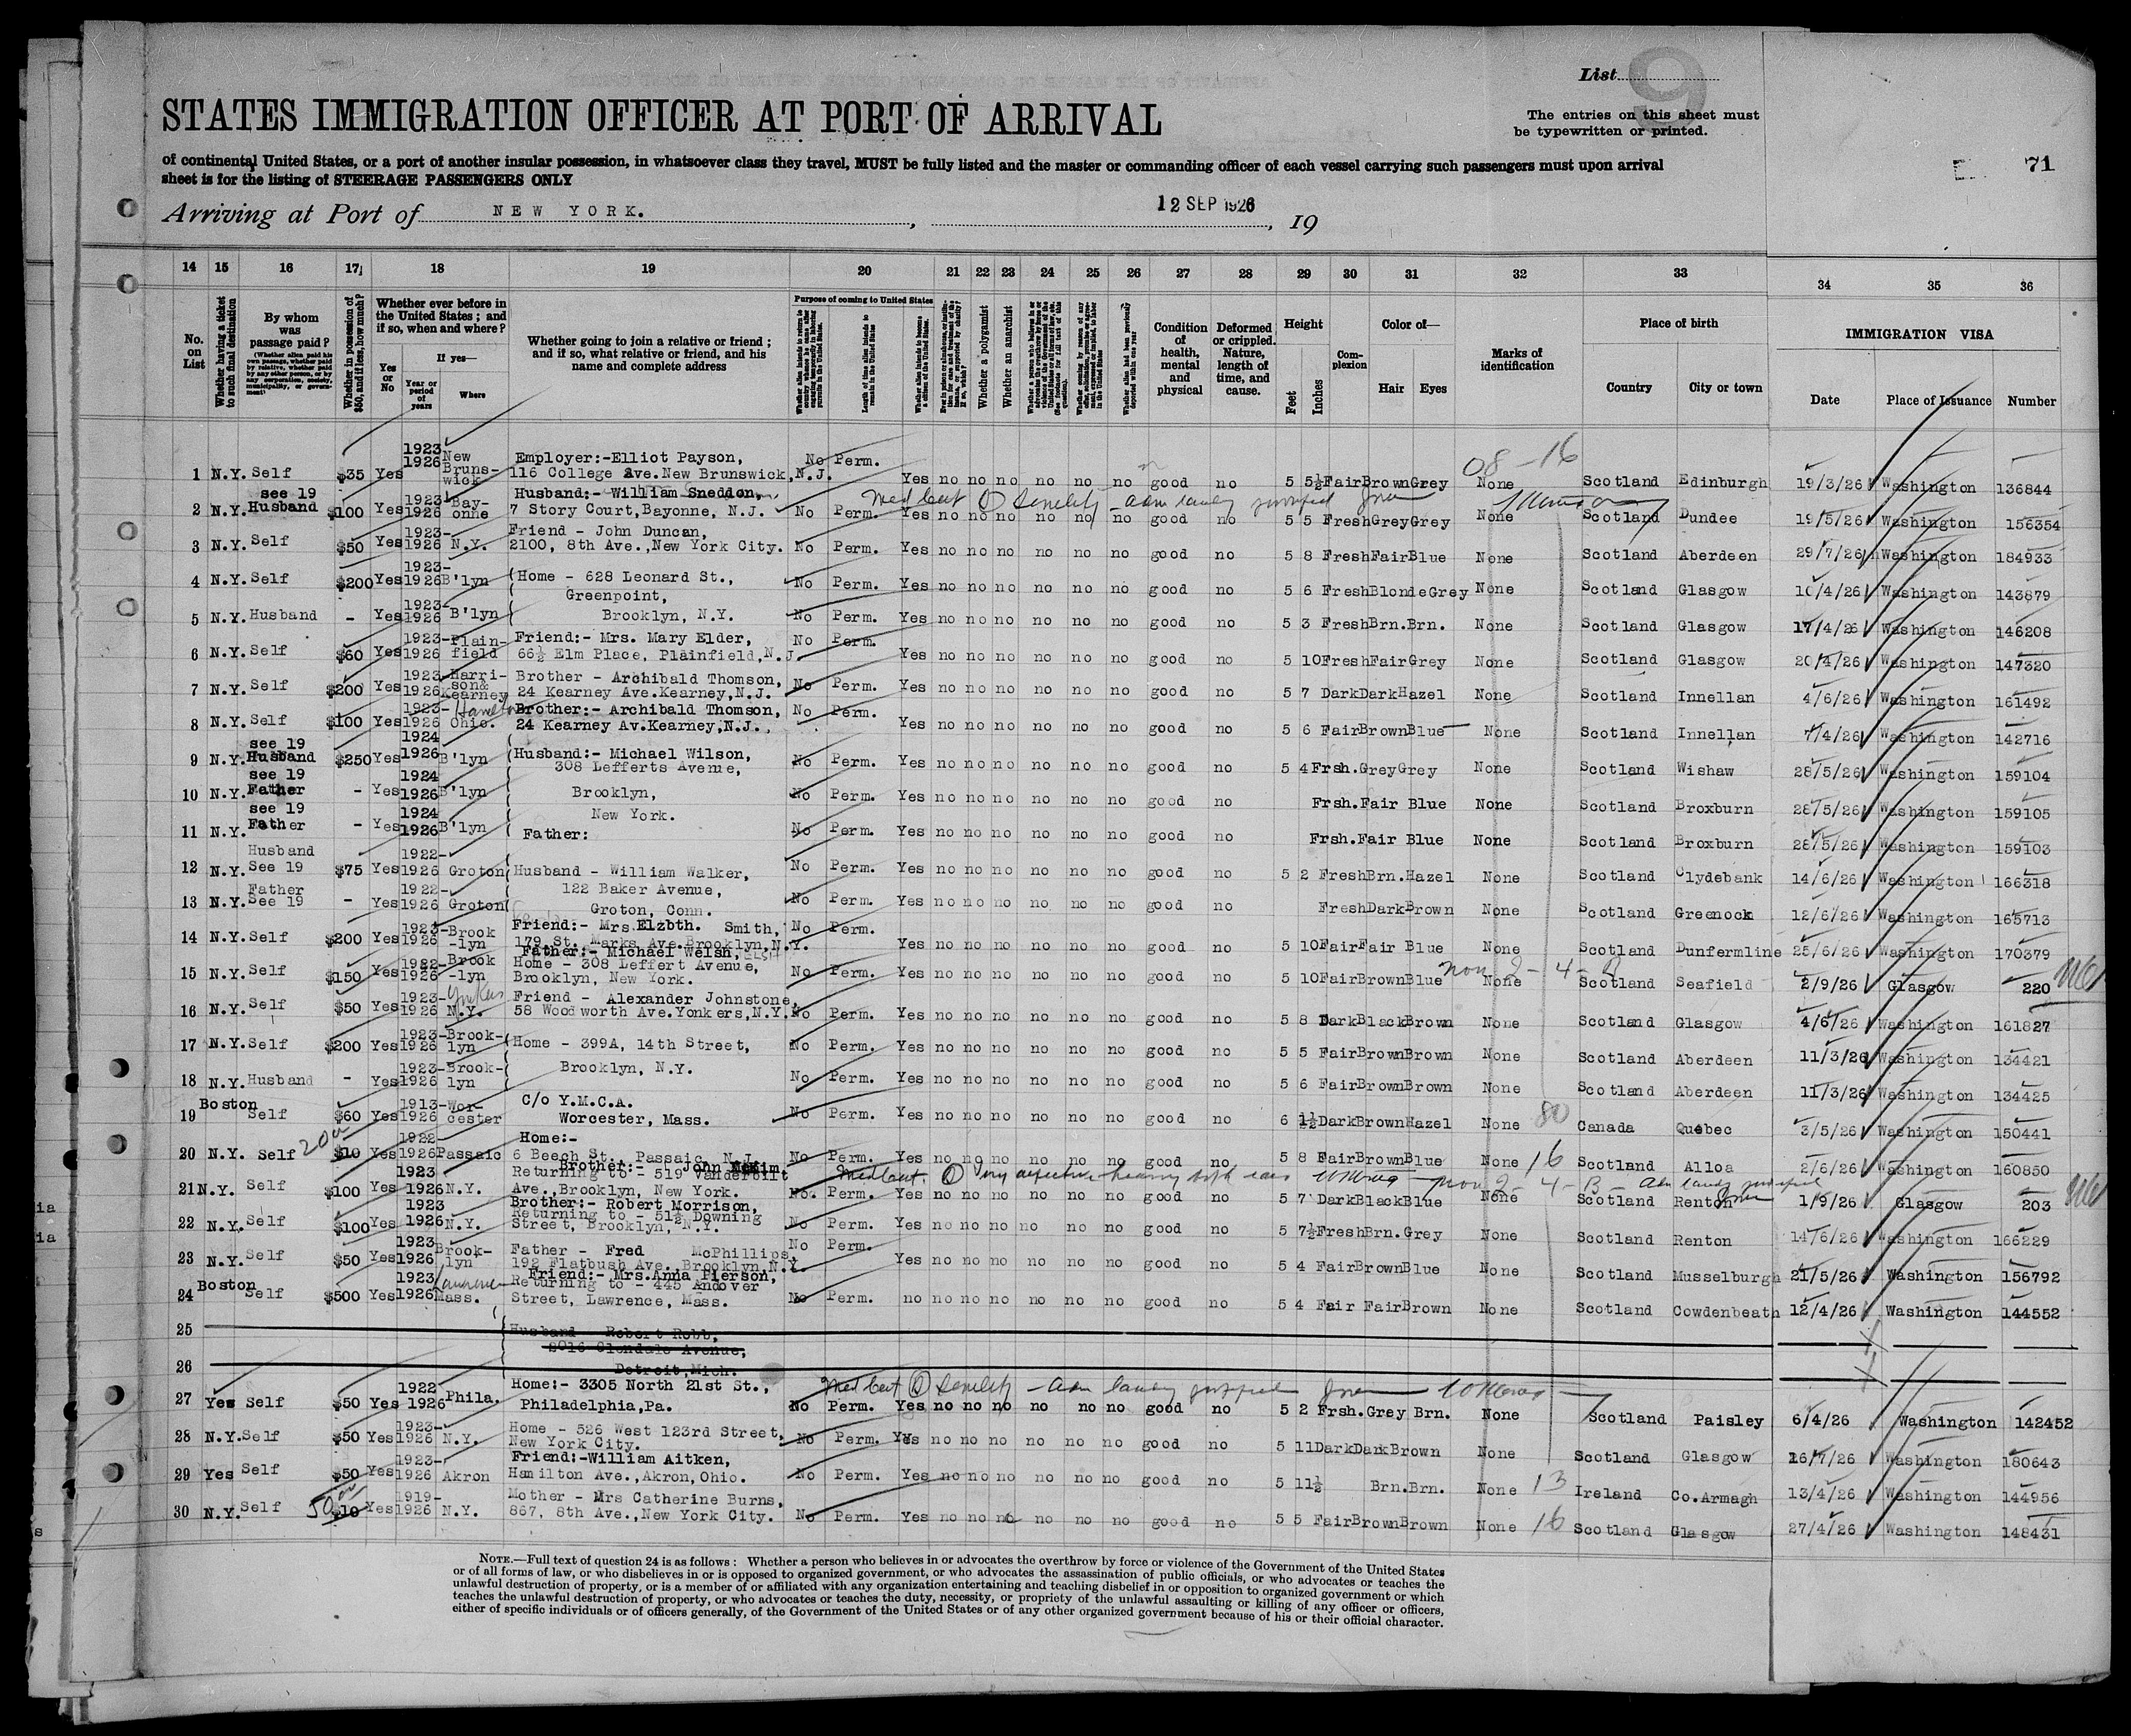 List 9
STATES IMMIGRATION OFFICER AT PORT OF ARRIVAL
The entries on this sheet must
be typewritten or printed.
71
of continental United States, or a port of another insular possession, in whatsoever class they travel, MUST be fully listed and the master or commanding officer of each vessel carrying such passengers must upon arrival
sheet is for the listing of STEERAGE PASSENGERS ONLY
Arriving at Port of NEW YORK. , 12 SEP 1926 , 19
14 15 16 17 18 19 20 21 22 23 24 25 26 27 28 29 30 31 32 33 34 35 36
No. on List
Whether having a ticket to such final destination
By whom was passage paid?
(Whether alien paid his own passage, whether paid by relative, whether paid by any other person, or by any corporation, society, municipality, or government)
Whether in possession of $50, and if less, how much?
Whether ever before in the United States; and if so, when and where?
Yes or No
If yes—
Year or period of years
Where
Whether going to join a relative or friend; and if so, what relative or friend, and his name and complete address
Purpose of coming to United States
Length of time alien intends to remain in the United States
Whether alien intends to become a citizen of the United States
Whether a polygamist
Whether an anarchist
Whether alien had been previously deported within one year
Condition of health, mental and physical
Deformed or crippled. Nature, length of time, and cause.
Height
Feet
Inches
Complexion
Color of—
Hair
Eyes
Marks of identification
Place of birth
Country
City or town
IMMIGRATION VISA
Date
Place of Issuance
Number
1 N.Y. Self $35 Yes 1923 1926 New Brunswick Employer:-Elliot Payson, 116 College Ave.New Brunswick,N.J. No Perm. Yes no no no no no no good no 5 5½ Fair Brown Grey None 08-16 Scotland Edinburgh 19/3/26 Washington 136844
2 N.Y. see 19 Husband $100 Yes 1923 1926 Bayonne Husband:- William Sneddon, 7 Story Court,Bayonne, N.J. No Perm. Yes no no no no no no good no 5 5 Fresh Grey Grey None Scotland Dundee 19/5/26 Washington 156354
Med Cert Senility - adm landg
3 N.Y. Self $50 Yes 1923- 1926 N.Y. Friend - John Duncan, 2100, 8th Ave.,New York City. No Perm. Yes no no no no no no good no 5 8 Fresh Fair Blue None Scotland Aberdeen 29/7/26 Washington 184933
4 N.Y. Self $200 Yes 1923- 1926 B'lyn (Home - 628 Leonard St., Greenpoint, No Perm. Yes no no no no no no good no 5 6 Fresh Blonde Grey None Scotland Glasgow 10/4/26 Washington 143879
5 N.Y. Husband - Yes 1923- 1926 B'lyn Brooklyn, N.Y. No Perm. Yes no no no no no no good no 5 3 Fresh Brn. Brn. None Scotland Glasgow 17/4/26 Washington 146208
6 N.Y. Self $60 Yes 1923- 1926 Plainfield Friend:- Mrs. Mary Elder, 66½ Elm Place, Plainfield,N.J. No Perm. Yes no no no no no no good no 5 10 Fresh Fair Grey None Scotland Glasgow 20/4/26 Washington 147320
7 N.Y. Self $200 Yes 1923- 1926 Harrison& Kearney Brother - Archibald Thomson, 24 Kearney Ave.Kearney,N.J. No Perm. Yes no no no no no no good no 5 7 Dark Dark Hazel None Scotland Innellan 4/6/26 Washington 161492
8 N.Y. Self $100 Yes 1923- 1926 Ohio. Brother:- Archibald Thomson, 24 Kearney Av.Kearney,N.J., No Perm. Yes no no no no no no good no 5 6 Fair Brown Blue None Scotland Innellan 7/4/26 Washington 142716
9 N.Y. see 19 Husband $250 Yes 1924 1926 B'lyn (Husband:- Michael Wilson, 308 Lefferts Avenue, No Perm. Yes no no no no no no good no 5 4 Frsh. Grey Grey None Scotland Wishaw 28/5/26 Washington 159104
10 N.Y. see 19 Father - Yes 1924 1926 B'lyn Brooklyn, New York. No Perm. Yes no no no no no no good no Frsh. Fair Blue None Scotland Broxburn 28/5/26 Washington 159105
11 N.Y. see 19 Father - Yes 1924 1926 B'lyn ( Father: No Perm. Yes no no no no no no good no Frsh. Fair Blue None Scotland Broxburn 28/5/26 Washington 159103
12 N.Y. Husband See 19 $75 Yes 1922- 1926 Groton (Husband - William Walker, 122 Baker Avenue, No Perm. Yes no no no no no no good no 5 2 Fresh Brn. Hazel None Scotland Clydebank 14/6/26 Washington 166318
13 N.Y. Father See 19 - Yes 1922- 1926 Groton Groton, Conn. No Perm. Yes no no no no no no good no Fresh Dark Brown None Scotland Greenock 12/6/26 Washington 165713
14 N.Y. Self $200 Yes 1923- 1926 Brook-lyn Friend:- Mrs.Elzbth. Smith, 179 St. Marks Ave.Brooklyn,N.Y. No Perm. Yes no no no no no no good no 5 10 Fair Fair Blue None Scotland Dunfermline 25/6/26 Washington 170379
15 N.Y. Self $150 Yes 1922- 1926 Brook-lyn Father:- Michael Welsh, Home - 308 Leffert Avenue, Brooklyn, New York. No Perm. Yes no no no no no no good no 5 10 Fair Brown Blue None Scotland Seafield 2/9/26 Glasgow 220
16 N.Y. Self $50 Yes 1923- 1926 Yonkers N.Y. Friend - Alexander Johnstone, 58 Woodworth Ave.Yonkers,N.Y. No Perm. Yes no no no no no no good no 5 8 Dark Black Brown None Scotland Glasgow 4/6/26 Washington 161827
17 N.Y. Self $200 Yes 1923- 1926 Brook-lyn (Home - 399A, 14th Street, No Perm. Yes no no no no no no good no 5 5 Fair Brown Brown None Scotland Aberdeen 11/3/26 Washington 134421
18 N.Y. Husband - Yes 1923- 1926 Brook-lyn Brooklyn, N.Y. No Perm. Yes no no no no no no good no 5 6 Fair Brown Brown None Scotland Aberdeen 11/3/26 Washington 134425
19 Boston Self $60 Yes 1913- 1926 Worcester C/o Y.M.C.A. Worcester, Mass. No Perm. Yes no no no no no no good no 6 1½ Dark Brown Hazel None 80 Canada Quebec 3/5/26 Washington 150441
20 N.Y. Self $10 200 Yes 1922- 1926 Passaic Home:- 6 Beech St., Passaic, N.J. No Perm. Yes no no no no no no good no 5 8 Fair Brown Blue None 16 Scotland Alloa 2/6/26 Washington 160850
Med Cert. very defective hearing both ears
21 N.Y. Self $100 Yes 1923 1926 N.Y. Brother:- John Mckim. Returning to - 519 Vanderbilt Ave.,Brooklyn, New York. No. Perm. Yes no no no no no no good no 5 7 Dark Black Blue None Scotland Renton 1/9/26 Glasgow 203
22 N.Y. Self $100 Yes 1923 1926 N.Y. Brother:- Robert Morrison, Returning to - 51½ Downing Street, Brooklyn, N.Y. No Perm. Yes no no no no no no good no 5 7½ Fresh Brn. Grey None Scotland Renton 14/6/26 Washington 166229
23 N.Y. Self $50 Yes 1923 1926 Brook-lyn Father - Fred McPhillips, 192 Flatbush Ave. Brooklyn,N.Y. No Perm. Yes no no no no no no good no 5 4 Fair Brown Blue None Scotland Musselburgh 21/5/26 Washington 156792
24 Boston Self $500 Yes 1923 1926 Lawrence Mass. Friend:- Mrs.Anna Pierson, Returning to - 445 Andover Street, Lawrence, Mass. No Perm. no no no no no no no good no 5 4 Fair Fair Brown None Scotland Cowdenbeath 12/4/26 Washington 144552
25 Husband - Robert Robb, 2016 Glendale Avenue,
26 Detroit,Mich.
27 Yes Self $50 Yes 1922 1926 Phila. Home:- 3305 North 21st St., Philadelphia,Pa. No Perm. Yes no no no no no no good no 5 2 Frsh. Grey Brn. None Scotland Paisley 6/4/26 Washington 142452
Med Cert Senility - adm landg
28 N.Y. Self $50 Yes 1923- 1926 N.Y. Home - 526 West 123rd Street, New York City. No Perm. Yes no no no no no no good no 5 11 Dark Dark Brown None Scotland Glasgow 16/7/26 Washington 180643
29 Yes Self $50 Yes 1923- 1926 Akron Friend:-William Aitken, Hamilton Ave.,Akron,Ohio. No Perm. Yes no no no no no no good no 5 11½ Brn. Brn. None 13 Ireland Co.Armagh 13/4/26 Washington 144956
30 N.Y. Self 50 $10 Yes 1919- 1926 N.Y. Mother - Mrs Catherine Burns, 867, 8th Ave.,New York City. No Perm. Yes no no no no no no good no 5 5 Fair Brown Brown None 16 Scotland Glasgow 27/4/26 Washington 148431
NOTE.—Full text of question 24 is as follows: Whether a person who believes in or advocates the overthrow by force or violence of the Government of the United States
or of all forms of law, or who disbelieves in or is opposed to organized government, or who advocates the assassination of public officials, or who advocates or teaches the
unlawful destruction of property, or is a member of or affiliated with any organization entertaining and teaching disbelief in or opposition to organized government or which
teaches the unlawful destruction of property, or who advocates or teaches the duty, necessity, or propriety of the unlawful assaulting or killing of any officer or officers,
either of specific individuals or of officers generally, of the Government of the United States or of any other organized government because of his or their official character.